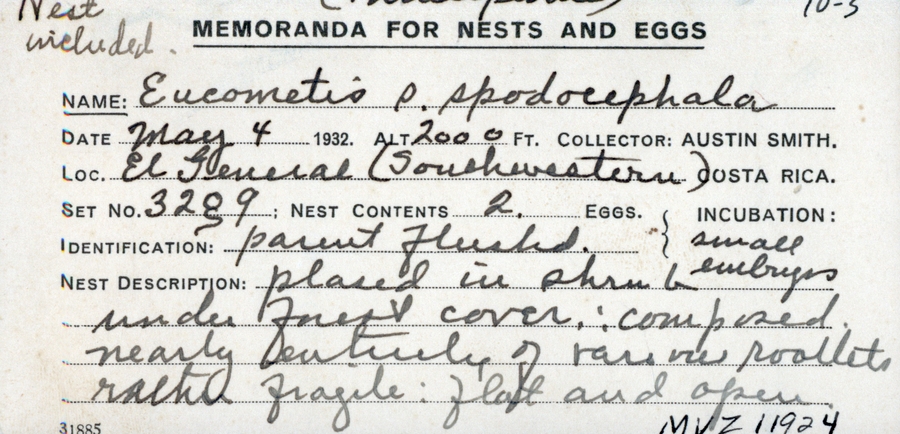 Nest 10-3
included.
MEMORANDA FOR NESTS AND EGGS
NAME: Eucometis s. spodocephala
DATE May 4 1932. ALT 2000 FT. COLLECTOR: AUSTIN SMITH.
LOC. El General (Southwestern) COSTA RICA.
SET NO. 3289; NEST CONTENTS 2. EGGS. { INCUBATION:
IDENTIFICATION: parent flushd. { small
embryos
NEST DESCRIPTION: plased in shrub
under forest cover.: composed
nearly entirely of various rootlets
rather fragile: flat and open.
31885 MVZ 11924